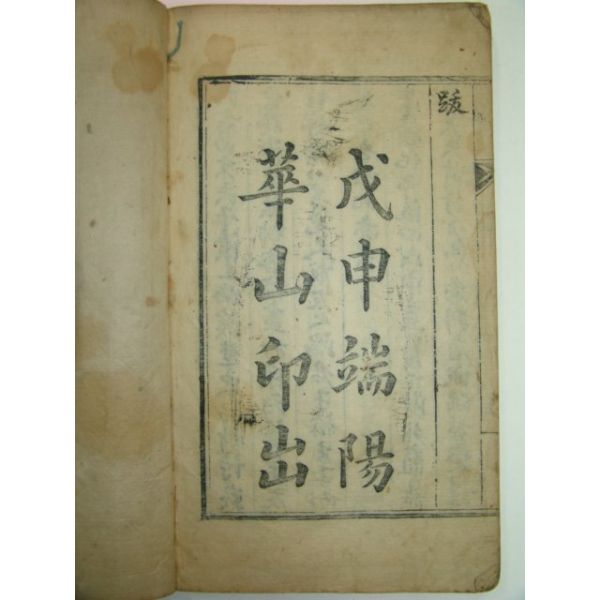 跋
戊申端陽
華山印出